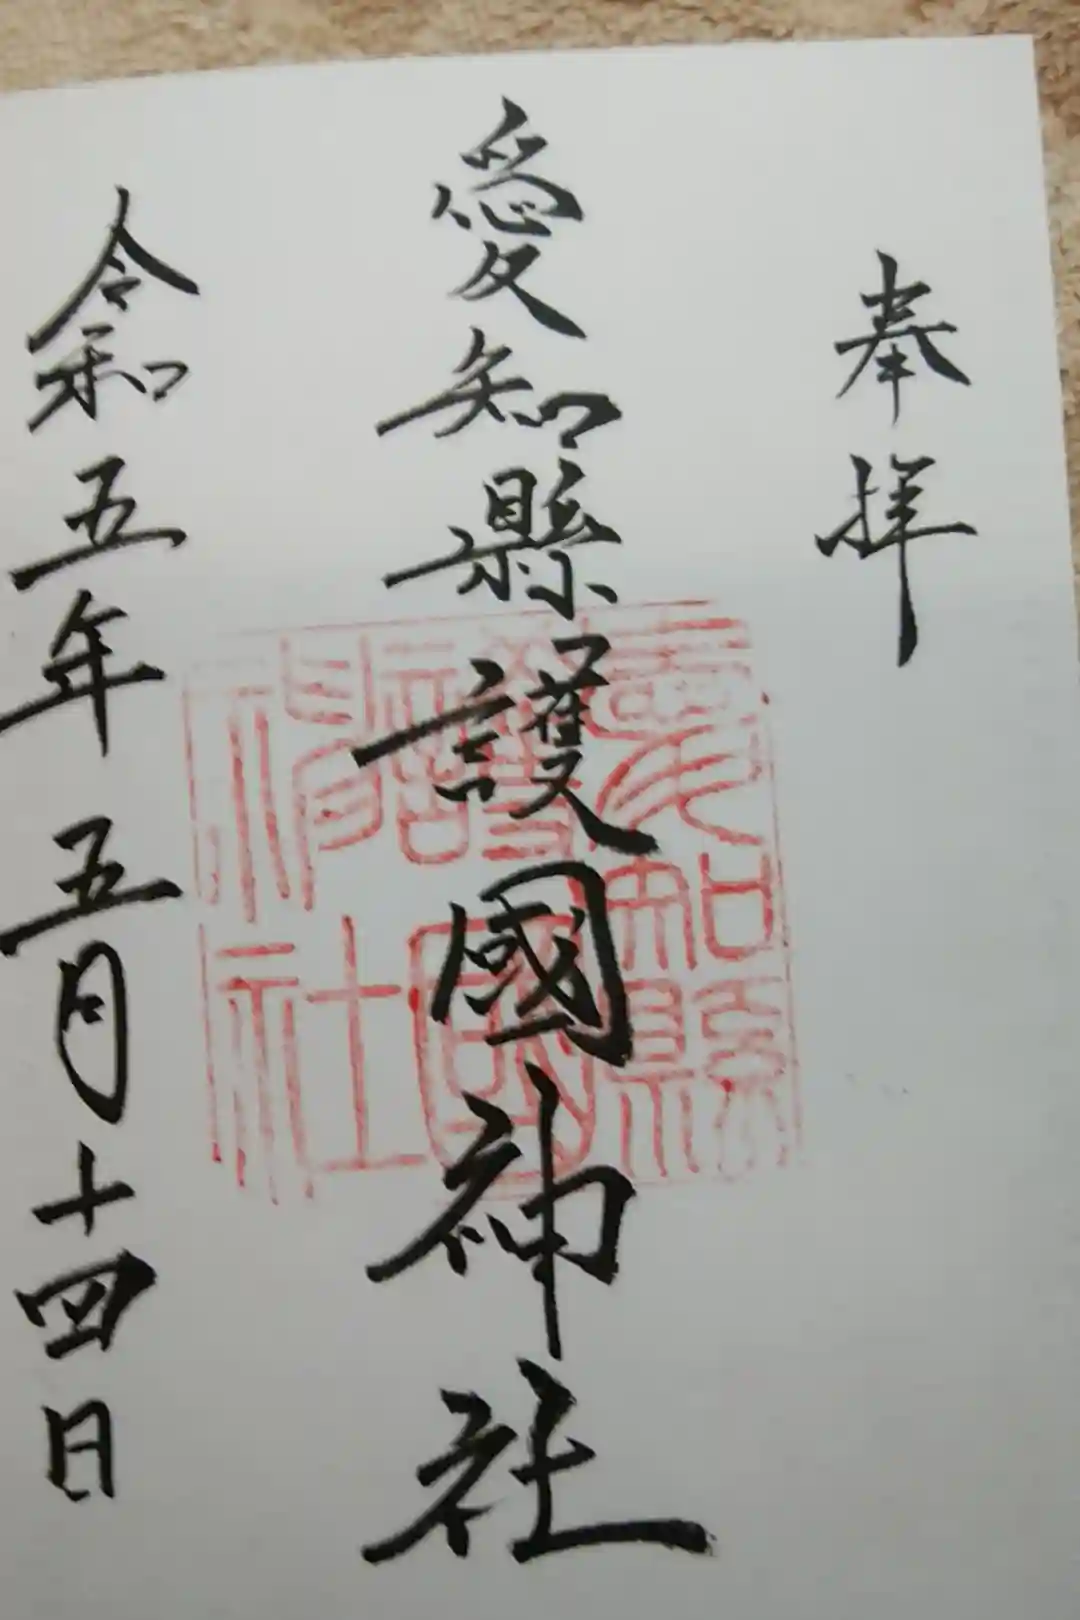 奉拝
愛知縣護國神社
愛知縣
護國
神社
令和五年五月十四日